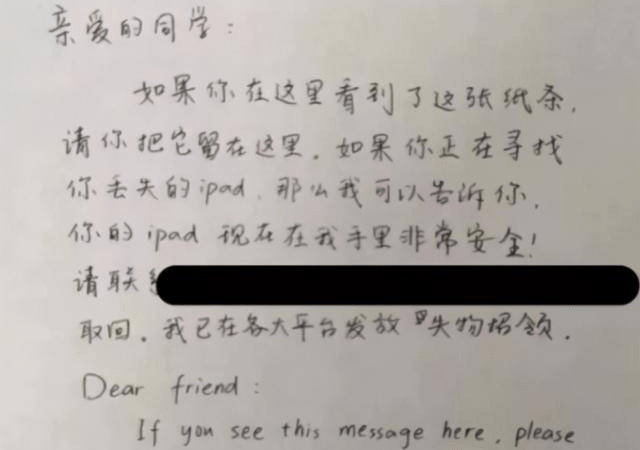 亲爱的同学：
如果你在这里看到了这张纸条，
请你把它留在这里。如果你正在寻找
你丢失的ipad，那么我可以告诉你，
你的ipad 现在在我手里非常安全！
请联
取回。我已在各大平台发放失物招领.
Dear friend:
If you see this message here, please